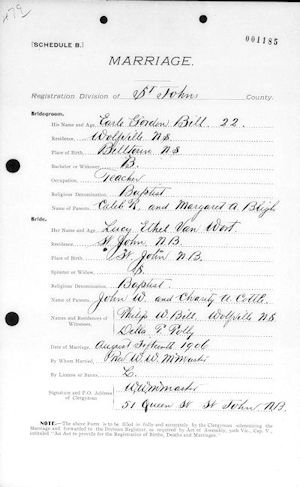 479
001185
[SCHEDULE B.]
MARRIAGE.
Registration Division of St John County.
Bridegroom.
His Name and Age, Earle Gordon Bill 22.
Residence, Wolfville N.S
Place of Birth, Billtown N.S
Bachelor or Widower, B.
Occupation, Teacher
Religious Denomination, Baptist
Name of Parents, Caleb R. and Margaret A Bligh
Bride.
Her Name and Age, Lucy Ethel Van Wort.
Residence, St John N.B.
Place of Birth, St. John N.B.
Spinster or Widow, S.
Religious Denomination, Baptist.
Name of Parents, John W. and Charity A.
Names and Residences of Witnesses, Philip W. Bill. Wolfville N.S
Della T.
Date of Marriage, August 1906
By Whom Married, W.W. McMaster
By License or Banns, L.
Signature and P.O. Address of Clergyman W.W. McMaster
51 Queen St St John N.B.
NOTE.—The above Form is to be filled in fully and accurately by the Clergyman solemnizing the
Marriage and forwarded to the Division Registrar, as required by Act of Assembly, 50th Vic., Cap. V.,
intituled "An Act to provide for the Registration of Births, Deaths and Marriages."